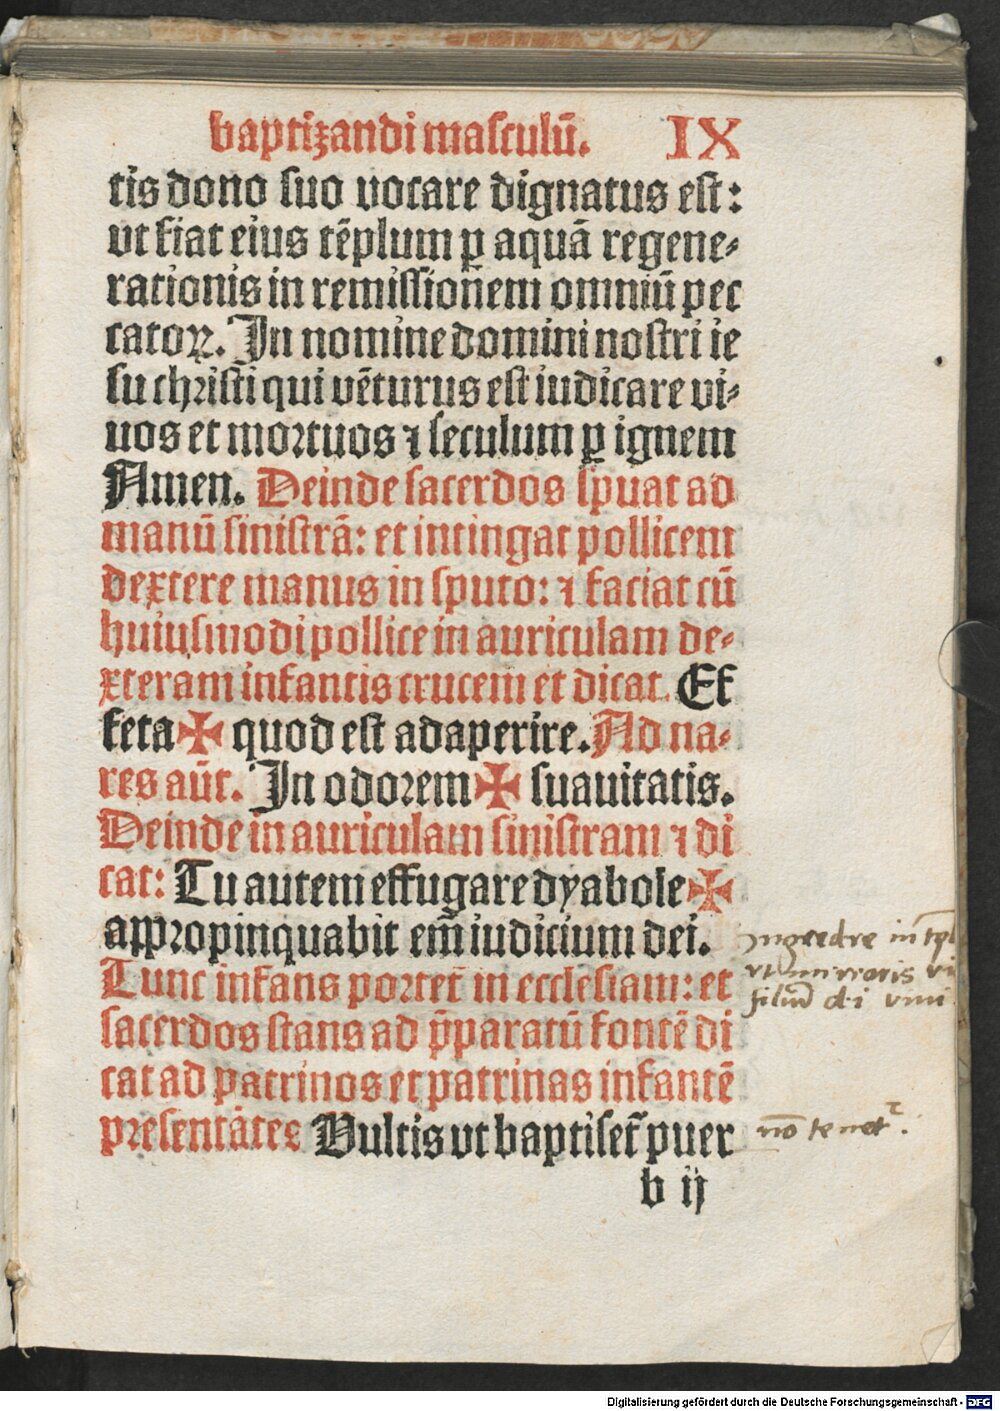 baptizandi masculū. IX
tis dono suo vocare dignatus est:
vt fiat eius tēplum ꝑ aquā regene⸗
rationis in remissionem omniū pec
catoꝝ. In nomine domini nostri ie
su christi qui vēturus est iudicare vi⸗
uos et mortuos ⁊ seculum ꝑ ignem
Amen. Deinde sacerdos spuat ad
manū sinistrā: et intingat pollicem
dextere manus in sputo: ⁊ faciat cū
huiusmodi pollice in auriculam de⸗
xteram infantis crucem et dicat. Ef
feta ✠ quod est adaperire. Ad na⸗
res aūt. In odorem ✠ suauitatis.
Deinde in auriculam sinistram ⁊ di
cat: Tu autem effugare dyabole ✠
appropinquabit em̄ iudicium dei.
Tunc infans portet̄ in ecclesiam: et
sacerdos stans ad p̄paratū fontē di
cat ad patrinos et patrinas infantē
presentātes Vultis vt baptiset̄ puer
b ij
filiū dei vivi
nō tenet᷑.